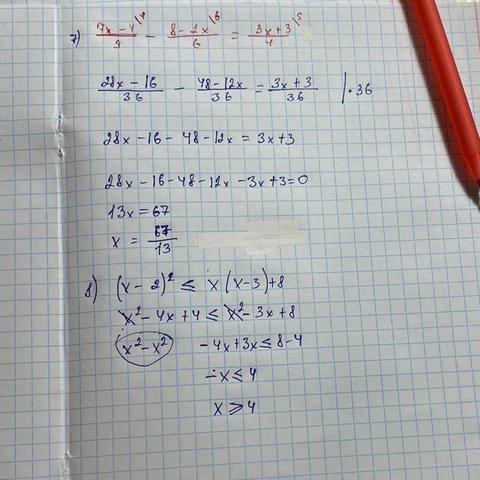 7) 7x-4|4/9 - 8-2x|6/6 = 3x+3|5/4
28x-16/36 - 48-12x/36 = 3x+3/36 |·36
28x-16-48-12x = 3x+3
28x-16-48-12x-3x+3=0
13x=67
x = 67/13
8) (x-2)² ≤ x(x-3)+8
x²-4x+4 ≤ x²-3x+8
x²-x² -4x+3x ≤ 8-4
-x ≤ 4
x ≥ 4